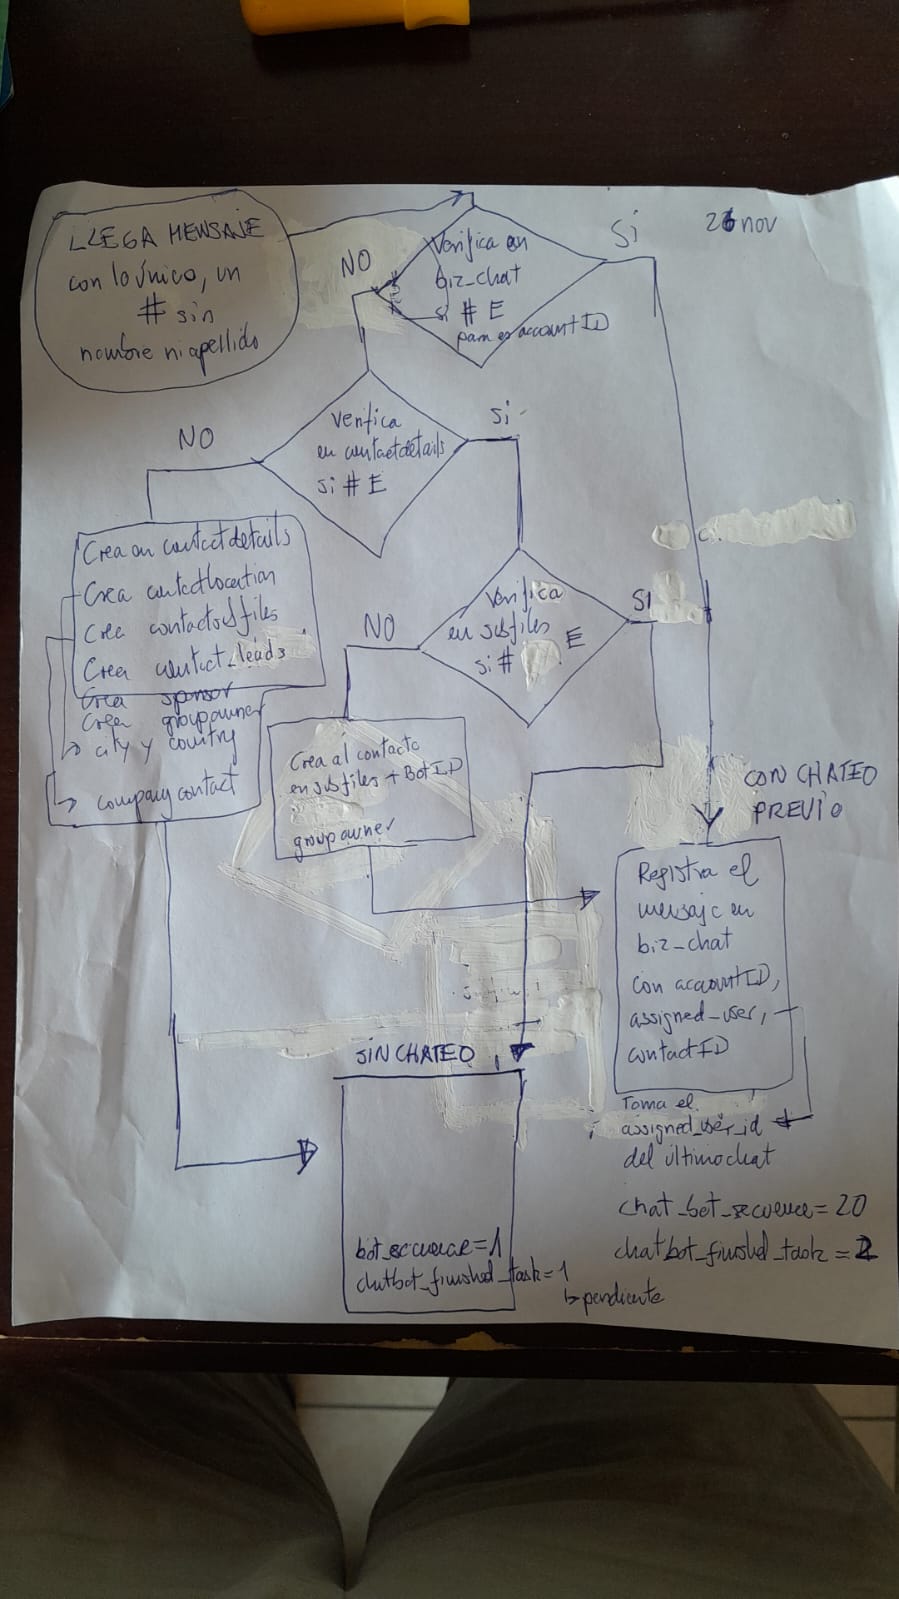 26 nov
LLEGA MENSAJE
con lo único, un
# sin
nombre ni apellido
NO
Si
Verifica en
biz_chat
si # E
para ese accountID
NO
Si
Verifica
en contactdetails
si # E
Crea en contactdetails
Crea contactlocation
Crea contactsubfiles
Crea contact_leads
Crea sponsor
Crea groupowner
city y country
company contact
NO
SI
Verifica
en subfiles
si # E
Crea al contacto
en subfiles + BotID
groupowner
CON CHATEO
PREVIO
Registra el
mensaje en
biz_chat
con accountID,
assigned_user,
contactID
Toma el
assigned_user_id
del último chat
chat_bot_secuence = 20
chatbot_finished_task = 2
SIN CHATEO
bot_secuence = 1
chatbot_finished_task = 1
pendiente